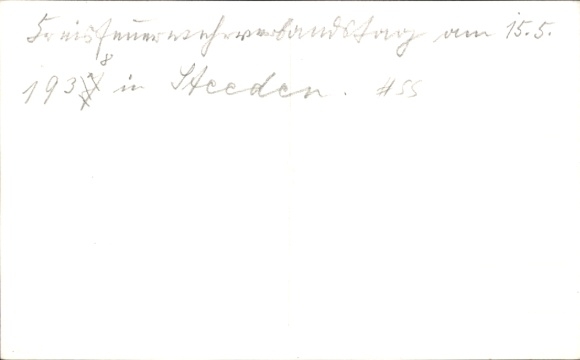 Kreisfeuerwehrverbandstag am 15.5.
1938 in Steeden. #55